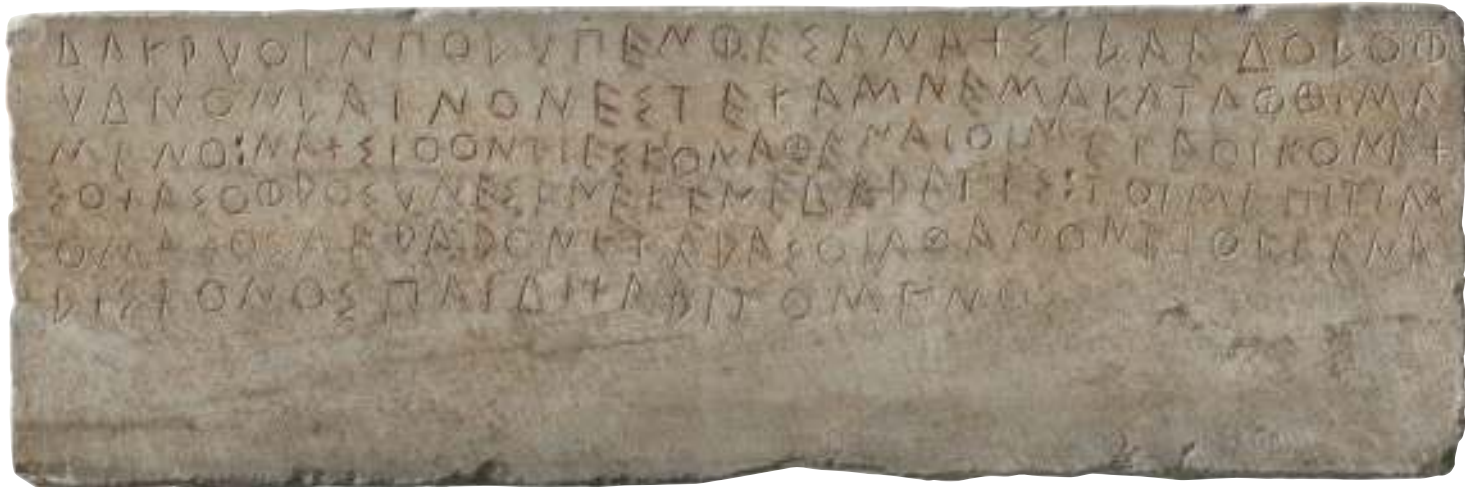 ΔΑΚΡΥΟΕΝΠΟΛΥΠΕΝΘΕΣΑΝΑΧΣΙΛΑΕΔΟΛΟΦ
ΥΔΝΟΝΛΑΙΝΟΝΕΣΤΕΚΑΜΝΕΜΑΚΑΤΑΦΘΙΜΑ
ΜΕΝΟ:ΝΑΧΣΙΟΟΝΤΙΕΣΚΟΝΑΘΕΝΑΙΟΙΜΕΤΑΟΙΚΟΝΕΧ
ΣΟΧΑΣΟΦΡΟΣΥΝΕΣΕΝΕΚΕΝΕΔΑΡΕΤΕΣ:ΤΟΙΜΕΠΙΤΙΜ
ΟΜΑΧΟΣΓΕΡΑΡΟΝΚΤΕΡΑΣΟΙΑΘΑΝΟΝΤΙΘΕΚΕΝΑ
ΡΙΣΤΟΝΟΣΠΑΙΔΙΧΑΡΙΖΟΜΕΝΟ